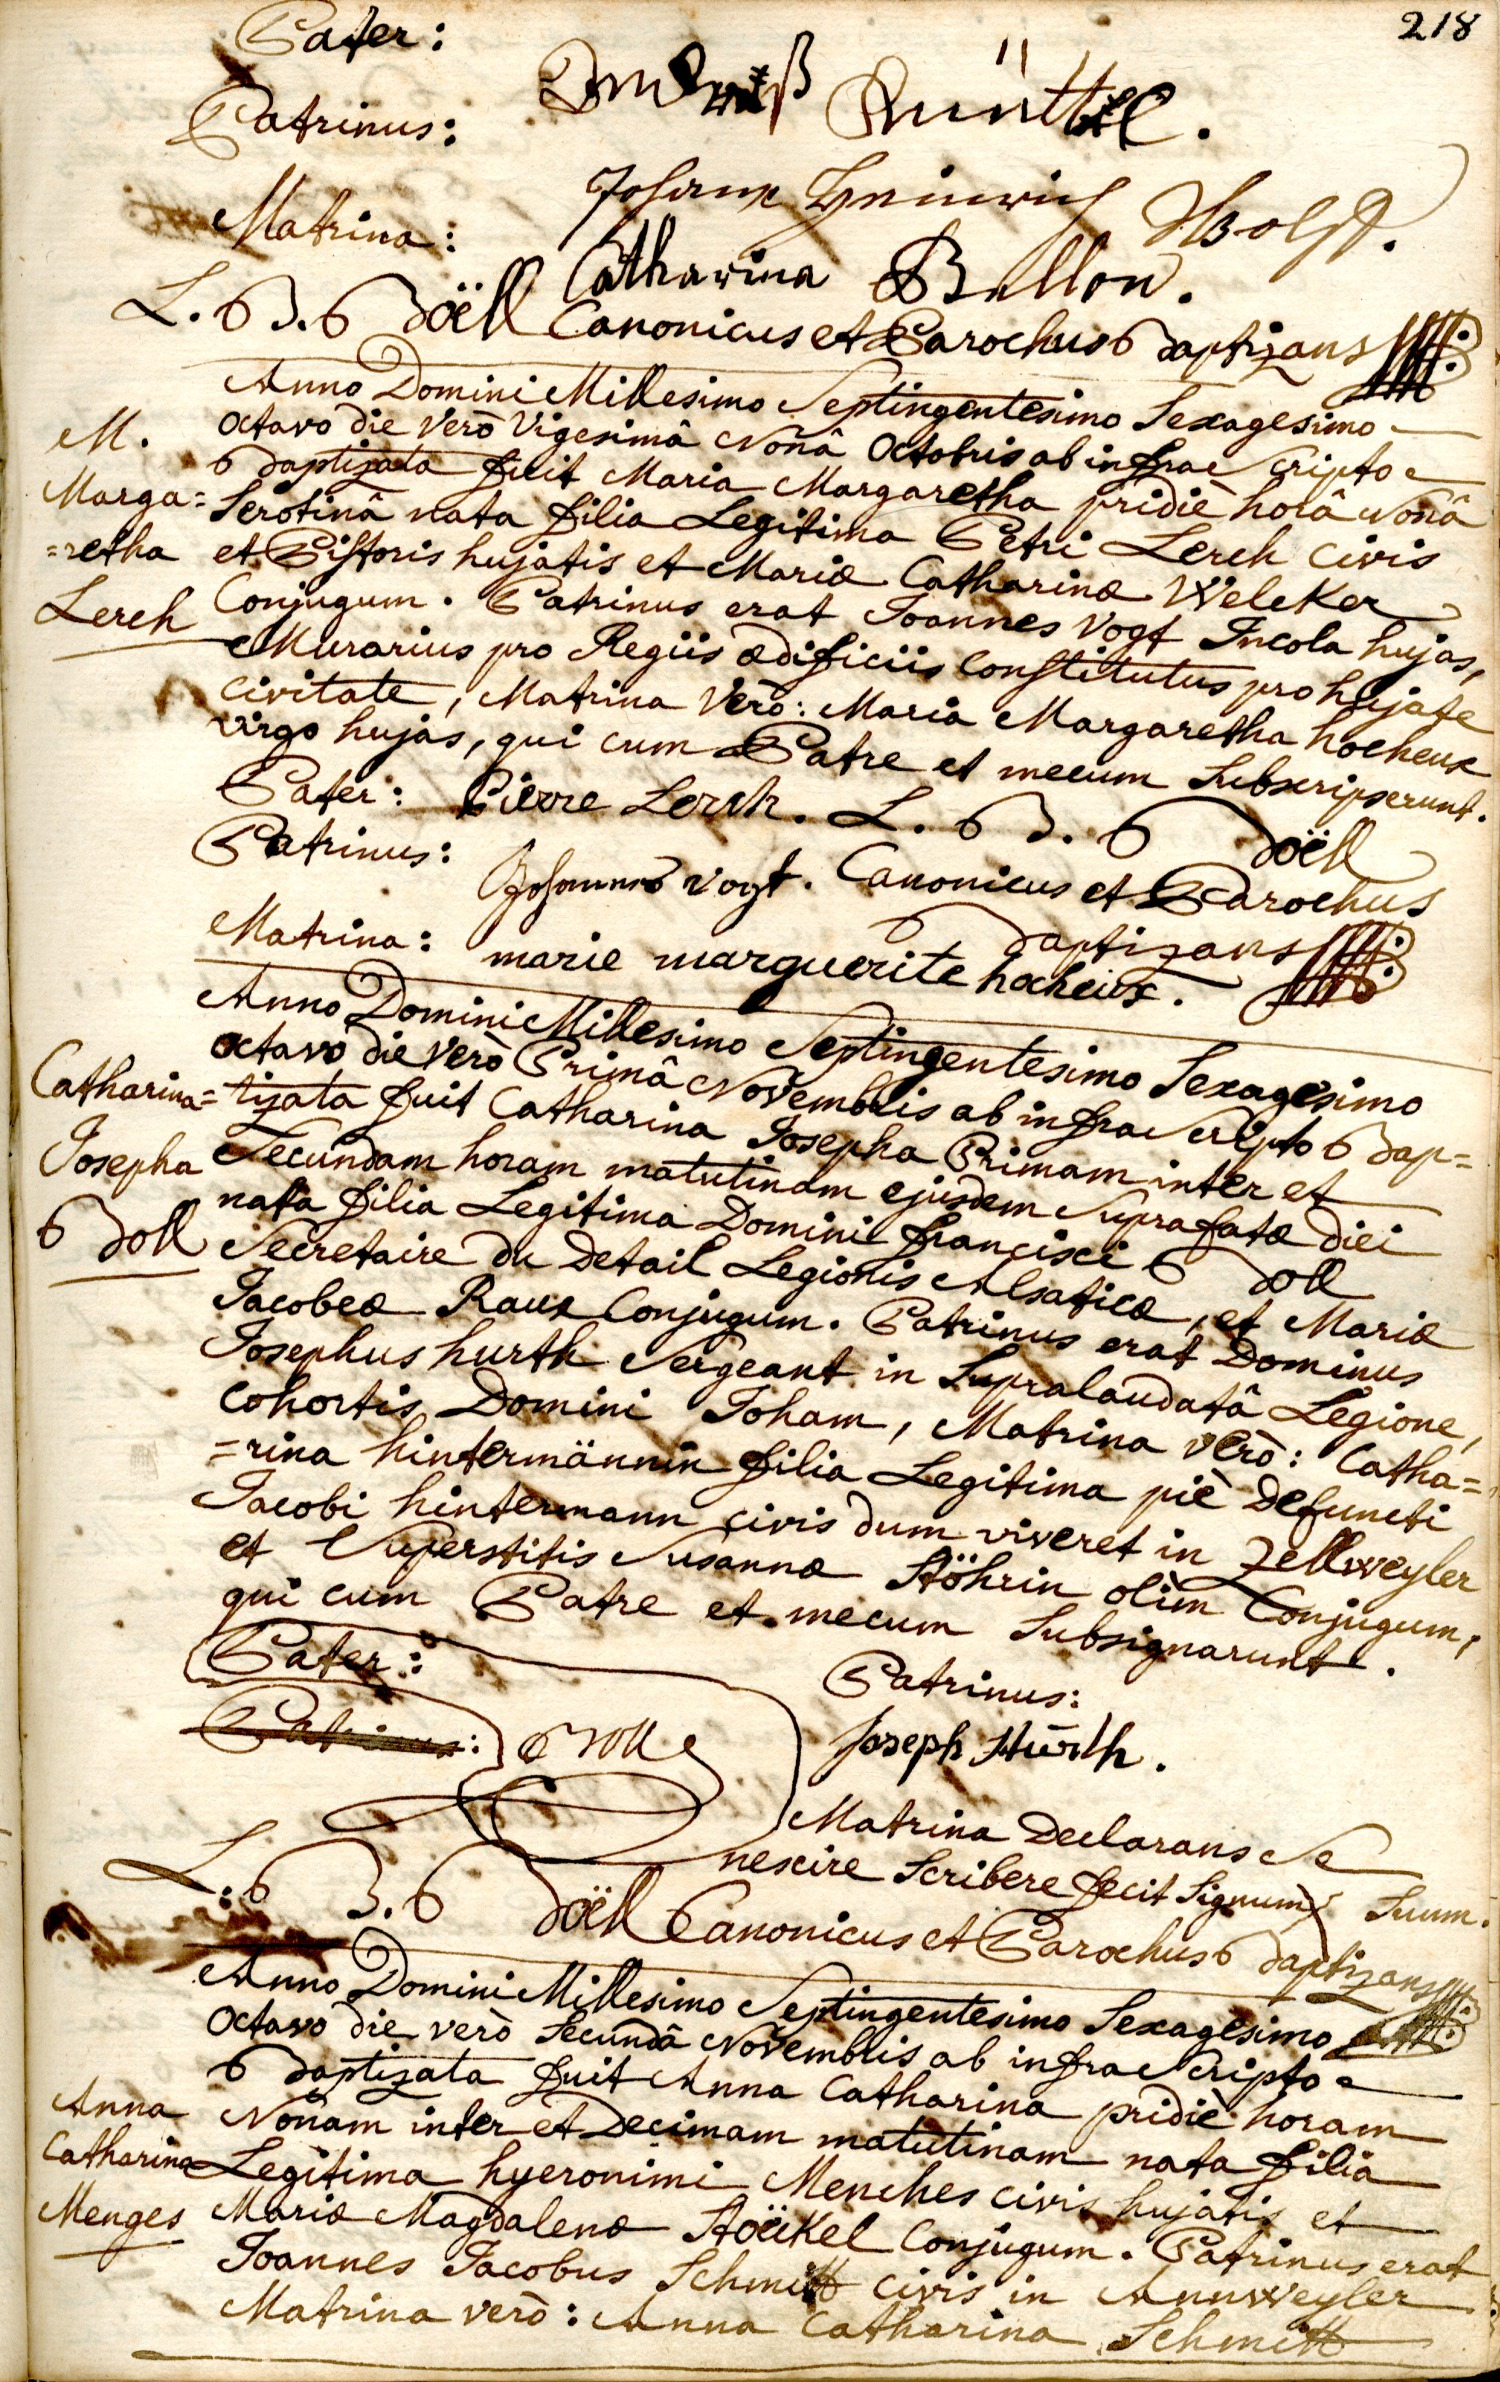 218
Pater:
Patrinus: Künttel.
Johann Heinrich Wolff.
Matrina: Catharina Ballon.
L. B. Böëll Canonicus et Parochus Baptizans
Anno Domini Millesimo Septingentesimo Sexagesimo
octavo die verò vigesimâ Nonâ Octobris ab infra Scripto
Baptizata fuit Maria Margaretha pridiè horâ Nonâ
Serotinâ nata filia Legitima Petri Lerch civis
et Pistoris hujatis et Mariæ Catharinæ Welcker
Conjugum. Patrinus erat Joannes Vogt Incola hujas,
Murarius pro Regiis ædificiis constitutus pro hujate
civitate, Matrina verò: Maria Margaretha hocheux
virgo hujas, qui cum Patre et mecum Subscripserunt.
M.
Marga=
=retha
Lerch
Pater: Pierre Lerch. L. B. Böëll
Patrinus: Johannes vogt. Canonicus et Parochus
Baptizans
Matrina: marie marguerite hocheux.
Anno Domini Millesimo Septingentesimo Sexagesimo
octavo die verò Primâ Novembris ab infra Scripto Bap=
tizata fuit Catharina Josepha Primam inter et
Secundam horam matutinam ejusdem Suprafatæ diei
nata filia Legitima Domini francisci Boll
Secretaire du Detail Legionis Alsaticæ, et Mariæ
Jacobeæ Raux Conjugum. Patrinus erat Dominus
Josephus hurth Sergeant in Supralaudatâ Legione,
cohortis Domini Joham, Matrina verò: Catha=
=rina hintermännin filia Legitima piè Defuncti
Jacobi hintermann civis dum viveret in Zellweyler
et Superstitis Susannæ Stöhrin olim Conjugum,
qui cum Patre et mecum Subsignarunt.
Catharina=
Josepha
Boll
Pater:
Patrinus: Boll
Patrinus:
Joseph Hürth.
Matrina Declarans Se
nescire Scribere fecit Signum Suum.
L. B. Böëll Canonicus et Parochus Baptizans
Anno Domini Millesimo Septingentesimo Sexagesimo
octavo die verò Secundâ Novembris ab infra Scripto
Baptizata fuit Anna Catharina pridiè horam
Nonam inter et Decimam matutinam nata filia
Legitima hyeronimi Menches civis hujatis et
Mariæ Magdalenæ Stöckel Conjugum. Patrinus erat
Joannes Jacobus Schmitt civis in Annweyler
Matrina verò: Anna Catharina Schmitt
Anna
Catharina
Menges